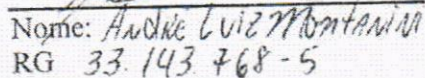 Nome: André Luiz Montanini
RG 33.143.768-5